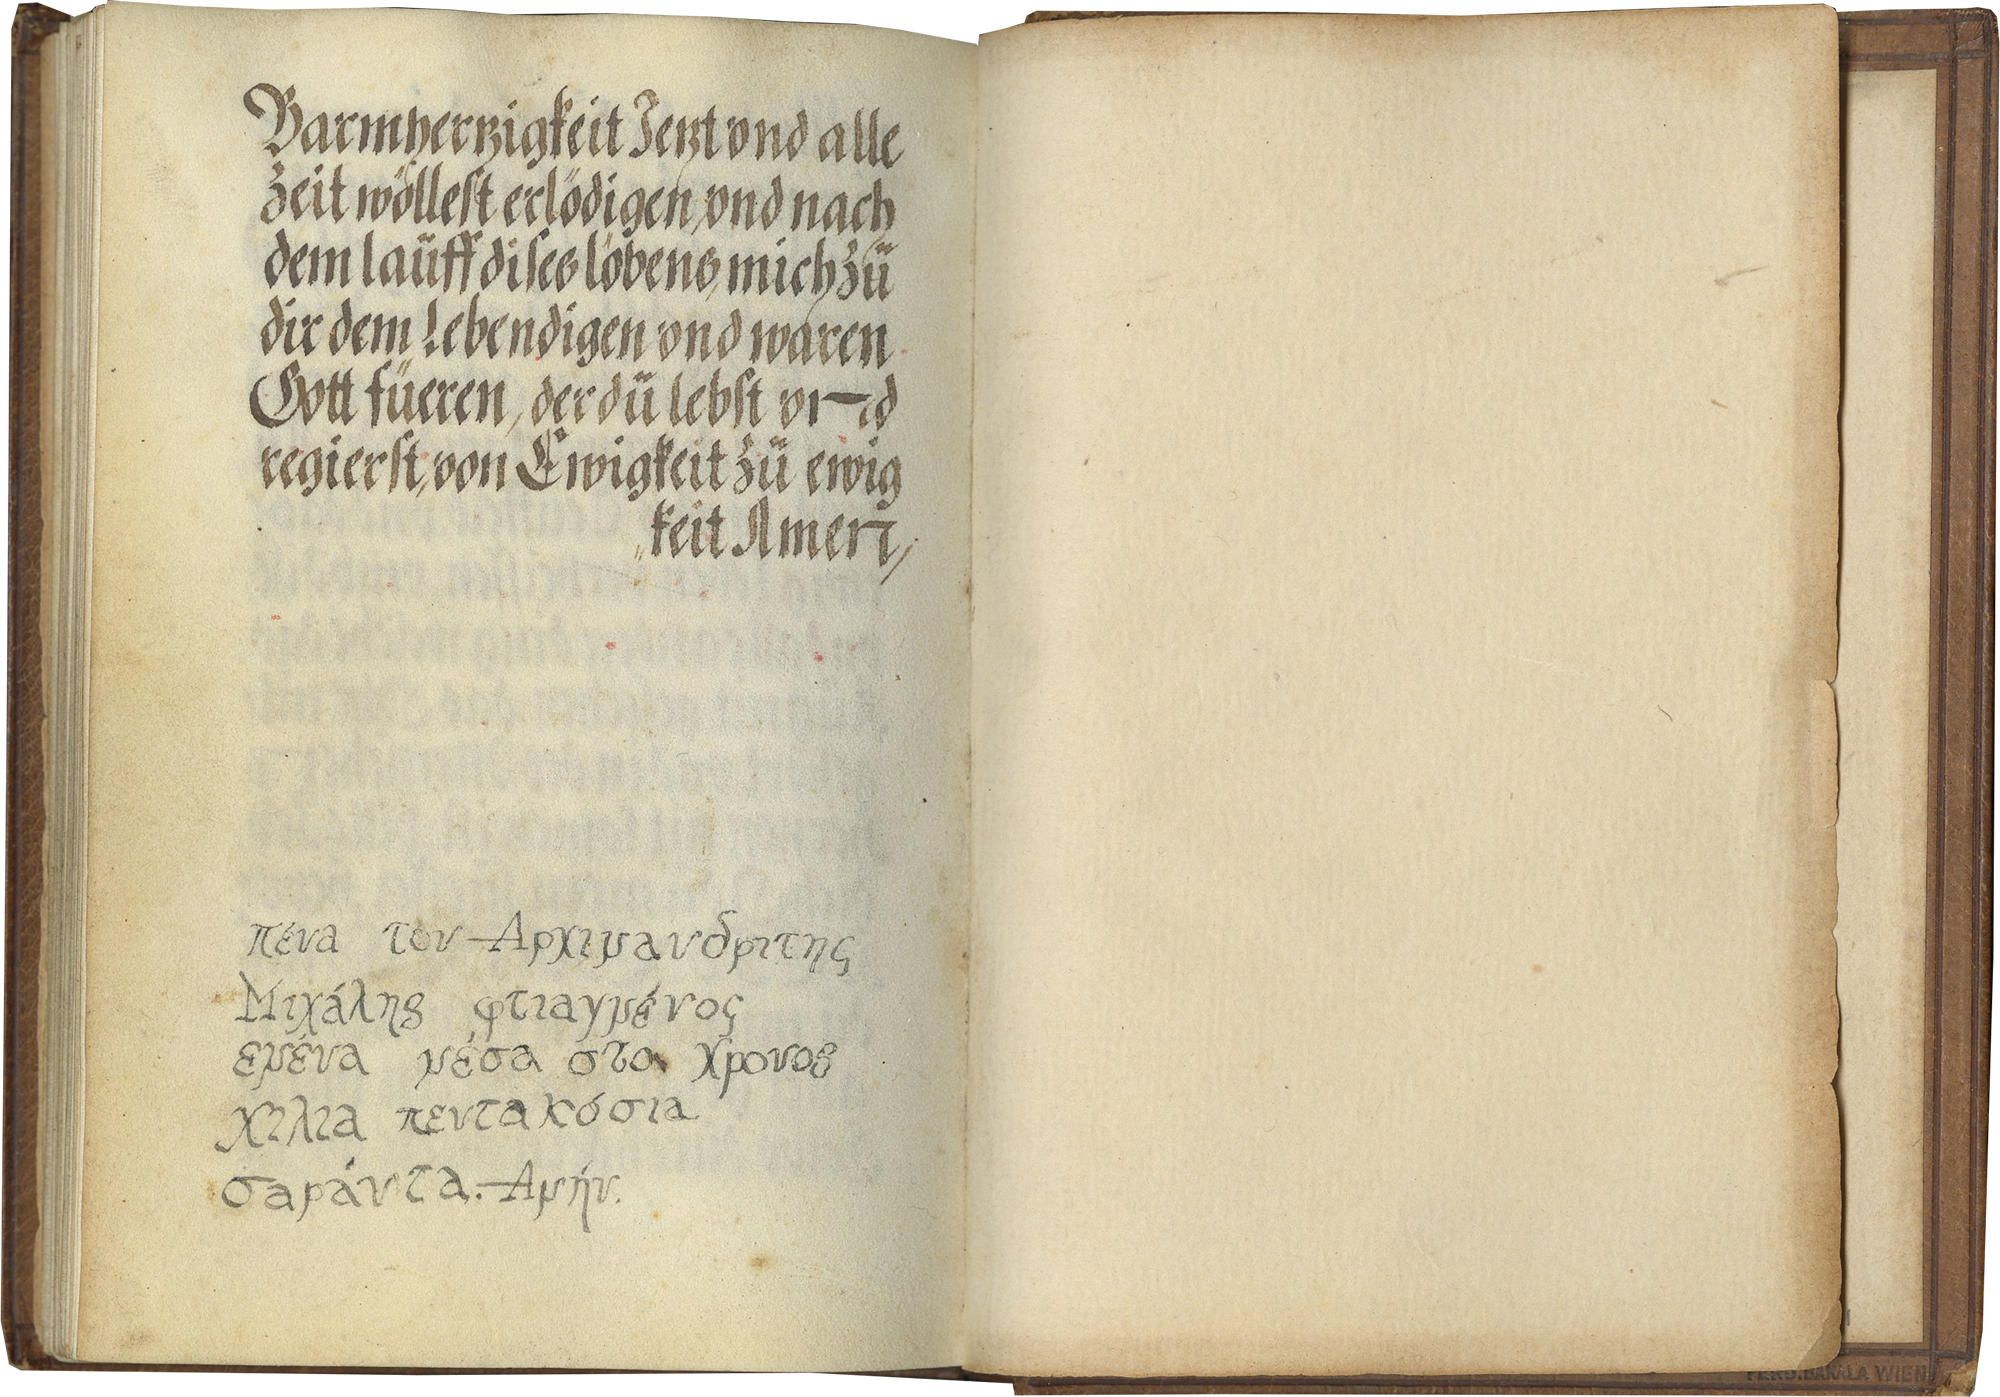 Barmhertzigkeit Jetzt vnd alle
Zeit wöllest erlödigen, vnd nach
dem laüff dises löbens, mich Zü
dir dem Lebendigen vnd waren
Gott füeren, der dü lebst vnd
regierst, von Ewigkeit Zü ewig
keit Amen,
πένα τον Αρχιμανδριτης
Μιχάλης φτιαγμένος
εμένα μέσα στο χρονος
χιλια πεντακόσια
σαράντα. Αμήν.
FERD. BAKALA WIEN